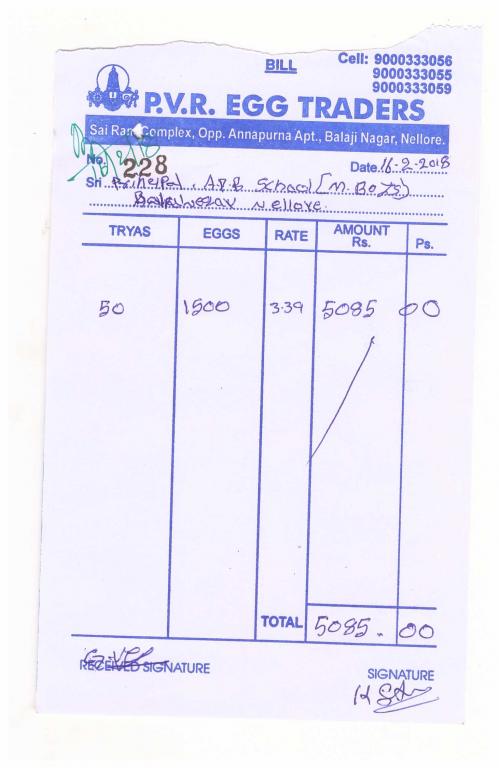 BILL
Cell: 9000333056
9000333055
9000333059
P.V.R. EGG TRADERS
Sai Ram Complex, Opp. Annapurna Apt., Balaji Nagar, Nellore.
No. 228 Date 16-2-2018
Sri Principal, School (M. Boys)
Nellore.
TRYAS EGGS RATE AMOUNT Rs. Ps.
50 1500 3.39 5085 00
TOTAL 5085. 00
RECEIVED SIGNATURE SIGNATURE